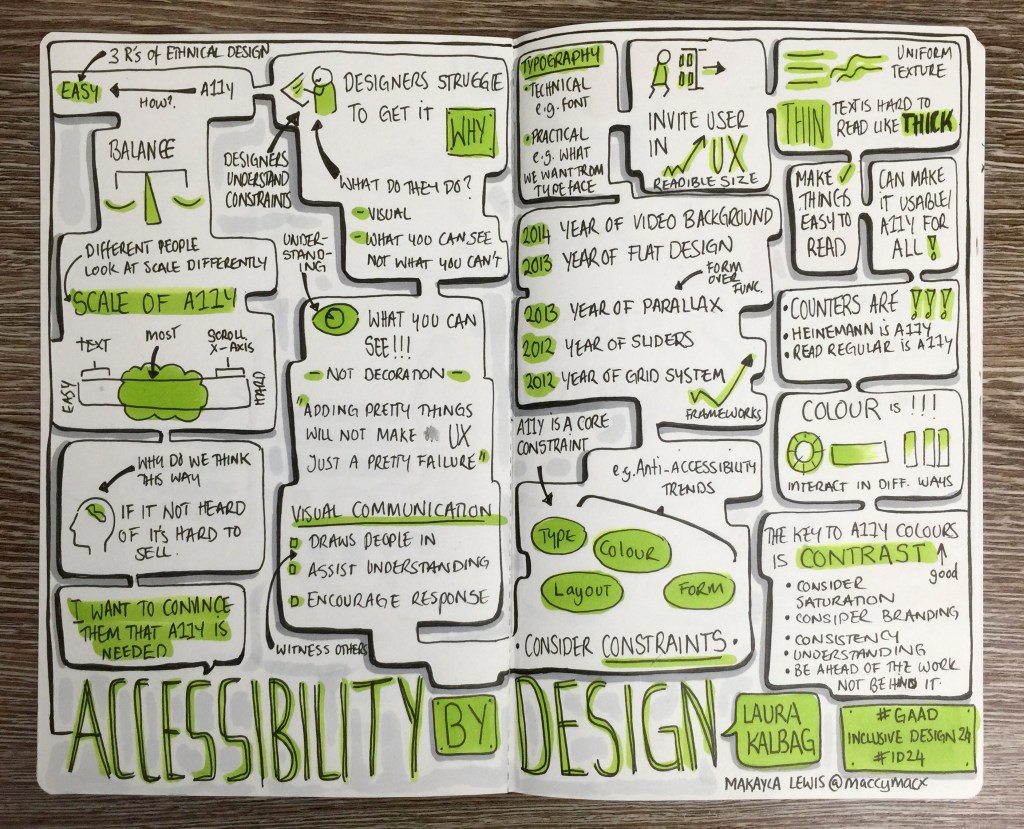 3 R's of ETHNICAL DESIGN
EASY
HOW?.
A11Y
BALANCE
DIFFERENT PEOPLE
LOOK AT SCALE DIFFERENTLY
SCALE OF A11Y
TEXT
MOST
SCROLL.
X-AXIS
EASY
HARD
WHY DO WE THINK
THIS WAY
IF IT NOT HEARD
OF IT'S HARD TO
SELL.
I WANT TO CONVINCE
THEM THAT A11Y IS
NEEDED
DESIGNERS STRUGGLE
TO GET IT
WHY
DESIGNERS
UNDERSTAND
CONSTRAINTS
WHAT DO THEY DO?
- VISUAL
- WHAT YOU CAN SEE
NOT WHAT YOU CAN'T
UNDER-
STAND-
ING
WHAT YOU CAN
SEE!!!
- NOT DECORATION -
"ADDING PRETTY THINGS
WILL NOT MAKE UX
JUST A PRETTY FAILURE"
VISUAL COMMUNICATION
DRAWS PEOPLE IN
ASSIST UNDERSTANDING
ENCOURAGE RESPONSE
WITNESS OTHERS
TYPOGRAPHY
• TECHNICAL
e.g. FONT
• PRACTICAL
e.g. WHAT
WE WANT FROM
TYPEFACE
INVITE USER
IN UX
READIBLE SIZE
UNIFORM
TEXTURE
THIN TEXT IS HARD TO
READ LIKE THICK
MAKE
THINGS
EASY TO
READ
CAN MAKE
IT USABLE/
A11Y FOR
ALL!
2014 YEAR OF VIDEO BACKGROUND
2013 YEAR OF FLAT DESIGN
FORM
OVER
FUNC.
2013 YEAR OF PARALLAX
2012 YEAR OF SLIDERS
2012 YEAR OF GRID SYSTEM
FRAMEWORKS
• COUNTERS ARE !!!
• HEINEMANN IS A11Y
• READ REGULAR IS A11Y
COLOUR IS !!!
INTERACT IN DIFF. WAYS
A11Y IS A CORE
CONSTRAINT
e.g. Anti-ACCESSIBILITY
TRENDS
TYPE
COLOUR
LAYOUT
FORM
• CONSIDER CONSTRAINTS •
THE KEY TO A11Y COLOURS
IS CONTRAST
good
• CONSIDER
SATURATION
• CONSIDER BRANDING
• CONSISTENCY
• UNDERSTANDING
• BE AHEAD OF THE WORK
NOT BEHIND IT.
ACCESSIBILITY BY DESIGN
LAURA
KALBAG
#GAAD
INCLUSIVE DESIGN 24
#ID24
MAKAYLA LEWIS @maccymacx